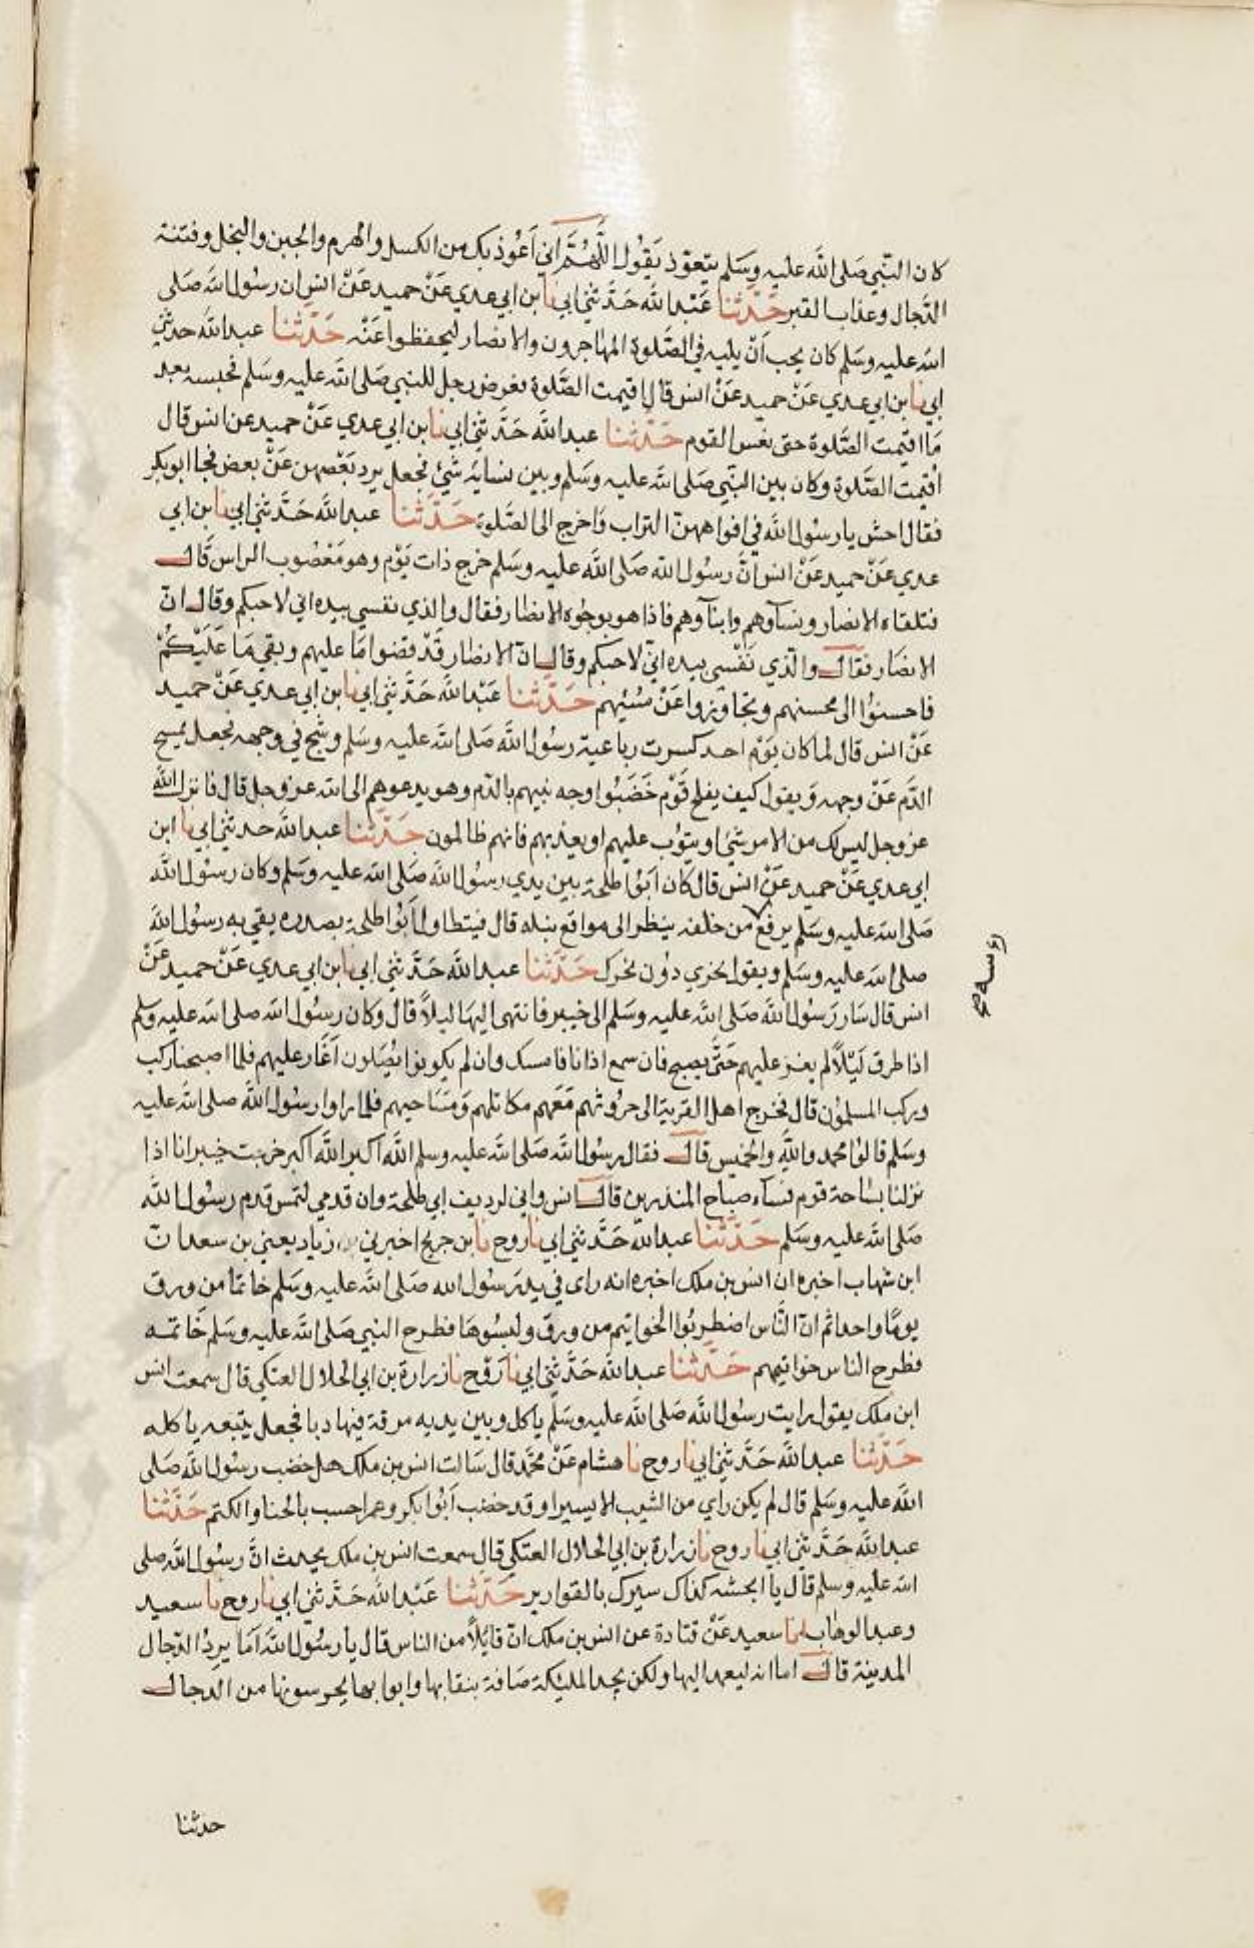 كان النبي صلى الله عليه وسلم يتعوذ يقول اللهم اني اعوذ بك من الكسل والهرم والجبن والبخل وفتنة
الدجال وعذاب القبر حدثنا عبد الله حدثني ابي نا بن ابي عدي عن حميد عن انس ان رسول الله صلى
الله عليه وسلم كان يحب ان يليه في الصلوة المهاجرون والانصار ليحفظوا عنه حدثنا عبد الله حدثني
ابي نا بن ابي عدي عن حميد عن انس قال اقيمت الصلوة فعرض رجل للنبي صلى الله عليه وسلم فحبسه بعد
ما اقيمت الصلوة حتى نعس القوم حدثنا عبد الله حدثني ابي نا بن ابي عدي عن حميد عن انس قال
اقيمت الصلوة وكان بين النبي صلى الله عليه وسلم وبين نسايه شئ فجعل يرد بعضهن عن بعض فجا ابو بكر
فقال احش يا رسول الله في افواههن التراب واخرج الى الصلوة حدثنا عبد الله حدثني ابي نا بن ابي
عدي عن حميد عن انس ان رسول الله صلى الله عليه وسلم خرج ذات يوم وهو معصوب الراس قال
فتلقاه الانصار ونسآوهم وابنآوهم فاذا هو بوجوه الانصار فقال والذي نفسي بيده اني لاحبكم وقال ان
الانصار فقال والذي نفسي بيده اني لاحبكم وقال ان الانصار قد قضوا ما عليهم وبقي ما عليكم
فاحسنوا الى محسنهم وتجاوزوا عن مسيئهم حدثنا عبد الله حدثني ابي نا بن ابي عدي عن حميد
عن انس قال لما كان يوم احد كسرت رباعية رسول الله صلى الله عليه وسلم وشج في وجهه فجعل يمسح
الدم عن وجهه ويقول كيف يفلح قوم خضبوا وجه نبيهم بالدم وهو يدعوهم الى الله عز وجل قال فانزل الله
عز وجل ليس لك من الامر شئ او يتوب عليهم او يعذبهم فانهم ظالمون حدثنا عبد الله حدثني ابي نا ابن
ابي عدي عن حميد عن انس قال كان ابو طلحة بين يدي رسول الله صلى الله عليه وسلم وكان رسول الله
صلى الله عليه وسلم يرفع من خلفه ينظر الى مواقع نبله قال فيتطاول ابو طلحة بصدره يقي به رسول الله
راسه صح
صلى الله عليه وسلم ويقول نحري دون نحرك حدثنا عبد الله حدثني ابي نا بن ابي عدي عن حميد عن
انس قال سار رسول الله صلى الله عليه وسلم الى خيبر فانتهى اليها ليلا قال وكان رسول الله صلى الله عليه وسلم
اذا طرق ليلا لم يغر عليهم حتى يصبح فان سمع اذانا فامسك وان لم يكونوا يصلون اغار عليهم فلما اصبحنا ركب
وركب المسلمون قال فخرج اهل القرية الى حروثهم معهم مكاتلهم ومساحيهم فلما راوا رسول الله صلى الله عليه
وسلم قالوا محمد والله والخميس قال فقال رسول الله صلى الله عليه وسلم الله اكبر الله اكبر خربت خيبر انا اذا
نزلنا بساحة قوم فسآء صباح المنذرين قال انس واني لرديف ابي طلحة وان قدمي لتمس قدم رسول الله
صلى الله عليه وسلم حدثنا عبد الله حدثني ابي نا روح نا بن جريج اخبرني زياد يعني بن سعد ان
ابن شهاب اخبره ان انس بن ملك اخبره انه راى في يد رسول الله صلى الله عليه وسلم خاتما من ورق
يوما واحدا ثم ان الناس اضطربوا الخواتيم من ورق ولبسوها فطرح النبي صلى الله عليه وسلم خاتمه
فطرح الناس خواتيمهم حدثنا عبد الله حدثني ابي نا روح نا زرارة بن ابي الحلال العتكي قال سمعت انس
ابن ملك يقول رايت رسول الله صلى الله عليه وسلم ياكل وبين يديه مرقة فيها دبا فجعل يتبعه ياكله
حدثنا عبد الله حدثني ابي نا روح نا هشام عن محمد قال سالت انس بن ملك هل خضب رسول الله صلى
الله عليه وسلم قال لم يكن راي من الشيب الا يسيرا وقد خضب ابو بكر وعمر احسب بالحنا والكتم حدثنا
عبد الله حدثني ابي نا روح نا زرارة بن ابي الحلال العتكي قال سمعت انس بن ملك يحدث ان رسول الله صلى
الله عليه وسلم قال يا انجشه كذاك سيرك بالقوارير حدثنا عبد الله حدثني ابي نا روح نا سعيد
وعبد الوهاب انا سعيد عن قتادة عن انس بن ملك ان قايلا من الناس قال يا رسول الله اما يرد الدجال
المدينة قال اما انه ليعمد اليها ولكن يجد المليكة صافة بنقابها وابوابها يحرسونها من الدجال
حدثنا